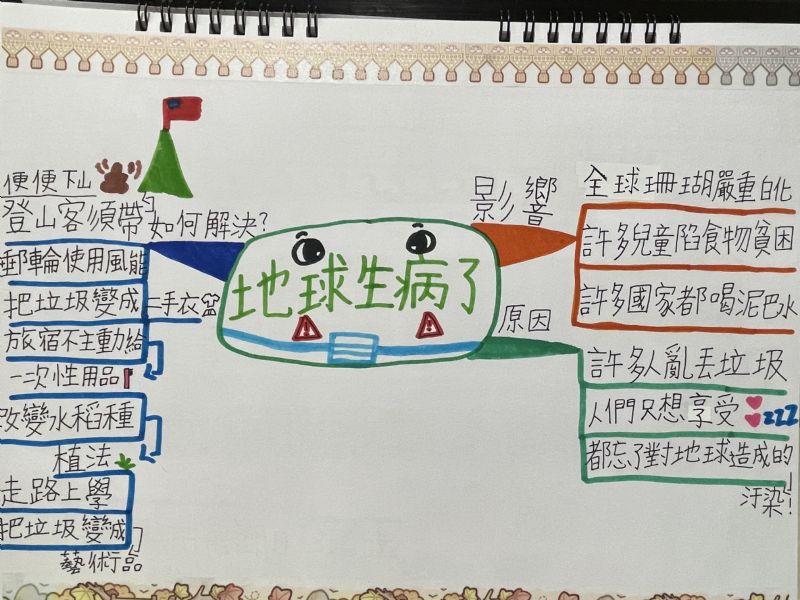 地球生病了
影響
全球珊瑚嚴重白化
許多兒童陷食物貧困
許多國家都喝泥巴水
原因
許多人亂丟垃圾
人們只想享受
zzz
都忘了對地球造成的
汙染!
如何解決?
便便下山
登山客須帶
郵輪使用風能
把垃圾變成二手衣
旅宿不主動給
一次性用品
改變水稻種
植法
走路上學
把垃圾變成
藝術品